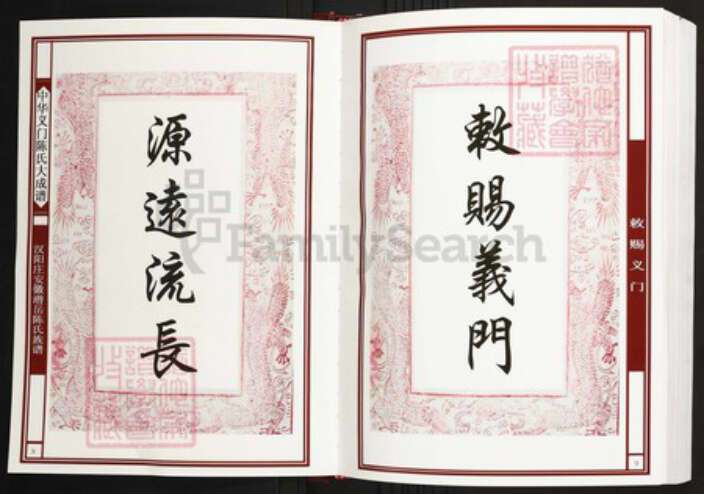 中华义门陈氏大成谱
汉阳庄安徽潜岳陈氏族谱
源遠流長
8
敕賜義門
敕赐义门
9
FamilySearch